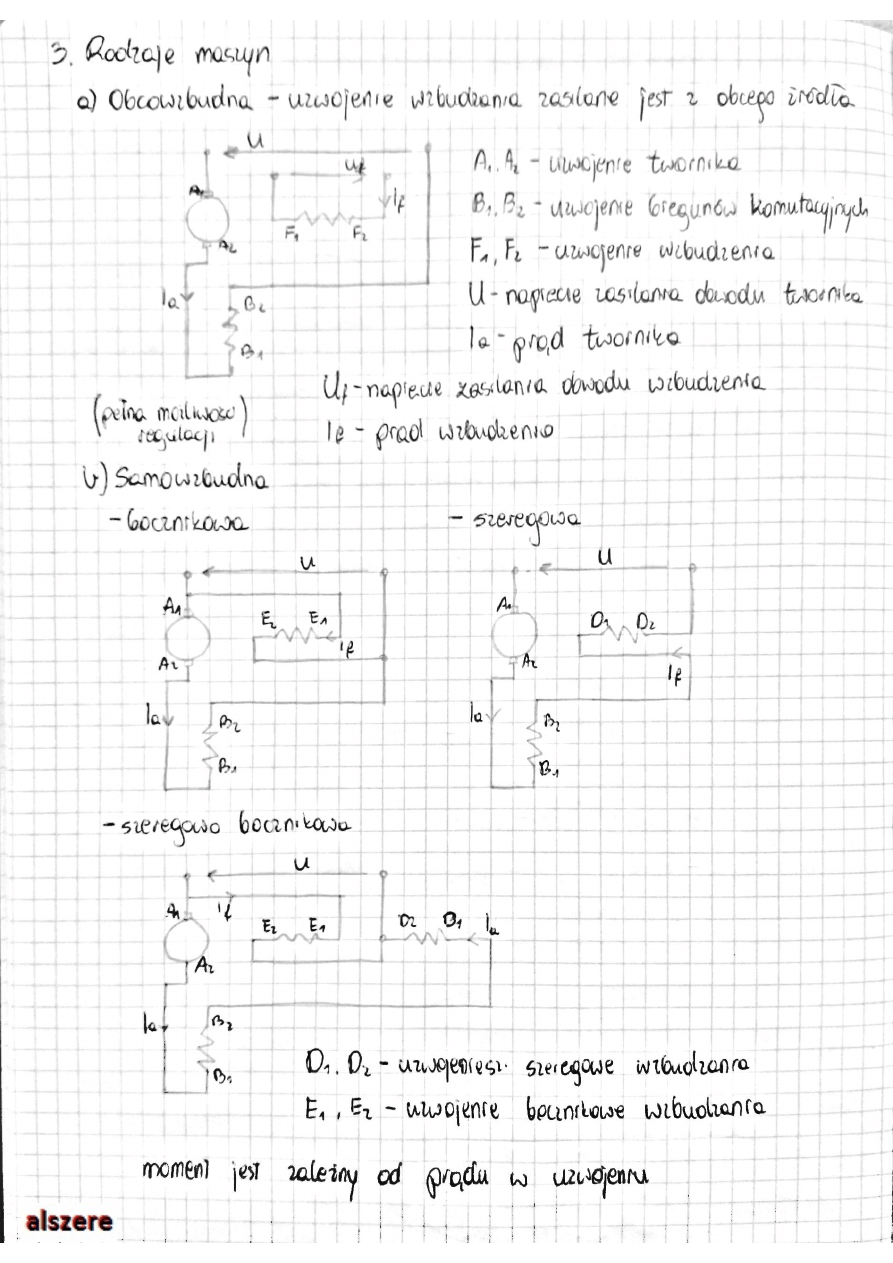 3. Rodzaje maszyn
a) Obcowzbudna - uzwojenie wzbudzania zasilane jest z obcego źródła
U
Uf
A1
If
F1 F2
A2
Ia
B2
B1
A1, A2 - uzwojenie twornika
B1, B2 - uzwojenie biegunów komutacyjnych
F1, F2 - uzwojenie wzbudzenia
U - napięcie zasilania obwodu twornika
Ia - prąd twornika
Uf - napięcie zasilania obwodu wzbudzenia
If - prąd wzbudzenia
(pełna możliwość
regulacji)
b) Samowzbudna
- bocznikowa
U
A1
E2 E1
If
A2
Ia
B2
B1
- szeregowa
U
A1
D1 D2
A2
If
Ia
B2
B1
- szeregowo bocznikowa
U
A1
If
E2 E1
D2 D1
Ia
A2
Ia
B2
B1
D1, D2 - szeregowe wzbudzania
E1, E2 - uzwojenie bocznikowe wzbudzania
moment jest zależny od prądu w uzwojeniu
alszere